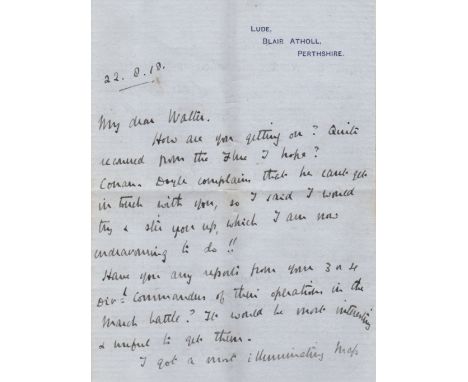 LUDE,
BLAIR ATHOLL,
PERTHSHIRE.
22. 8. 18.
My dear Walter.
How are you getting on? Quite
recovered from the Flue I hope?
Conan Doyle complains that he can't get
in touch with you, so I said I would
try & stir you up, which I am now
endeavouring to do!!
Have you any reports from your 3 or 4
Div:l Commanders of their operations in the
March battle? It would be most interesting
& useful to get them.
I got a most illuminating Map